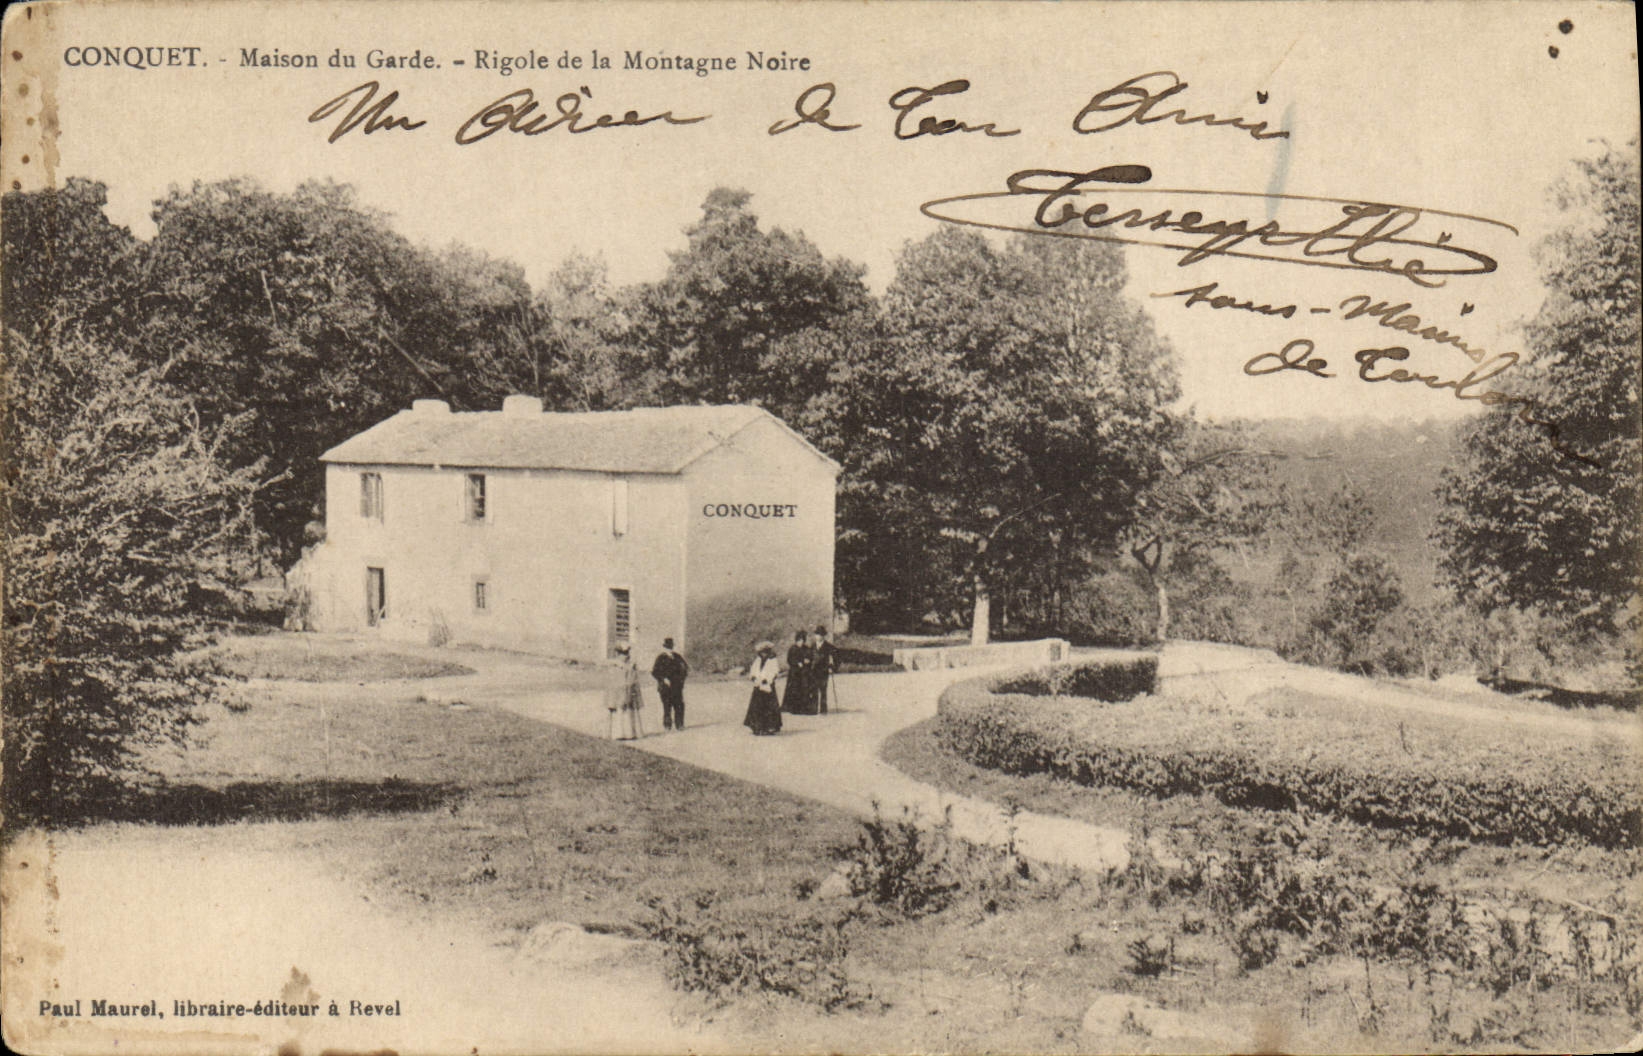 CONQUET. - Maison du Garde. - Rigole de la Montagne Noire
Un de ton Ami
sous-Marins
de Toulon
CONQUET
Paul Maurel, libraire-éditeur à Revel